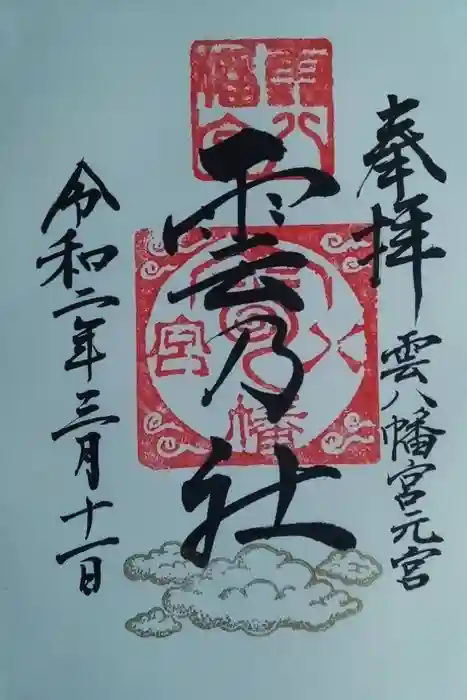 奉拝
雲八幡宮元宮
雲乃社
令和二年三月十一日
雲八幡宮
雲八幡宮